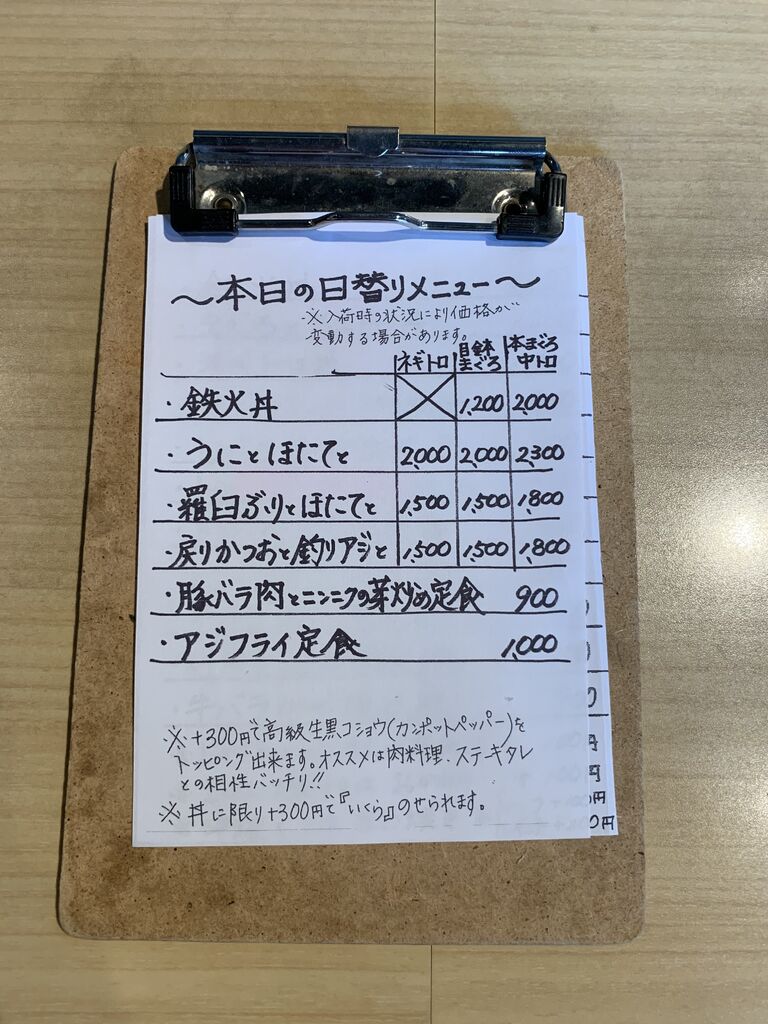 ～本日の日替りメニュー～
※入荷時の状況により価格が
変動する場合があります。
ネギトロ 目鉢本まぐろ 本まぐろ中トロ
・鉄火丼 1,200 2,000
・うにとほたてと 2,000 2,000 2,300
・羅臼ぶりとほたてと 1,500 1,500 1,800
・戻りかつおと釣りアジと 1,500 1,500 1,800
・豚バラ肉とニンニクの芽炒め定食 900
・アジフライ定食 1,000
※+300円で高級生黒コショウ(カンポットペッパー)を
トッピング出来ます。オススメは肉料理、ステーキタレ
との相性バッチリ!!
※丼に限り+300円で『いくら』のせられます。